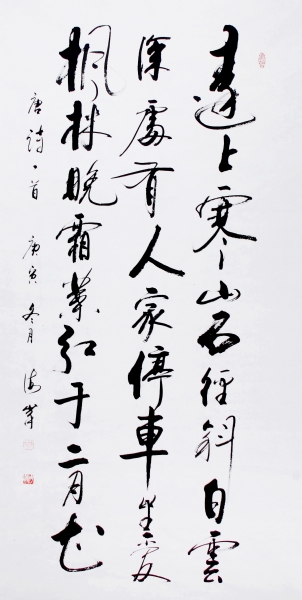 遠上寒山石徑斜白雲
深處有人家停車坐愛
楓林晚霜葉紅于二月花
唐詩一首 庚寅冬月